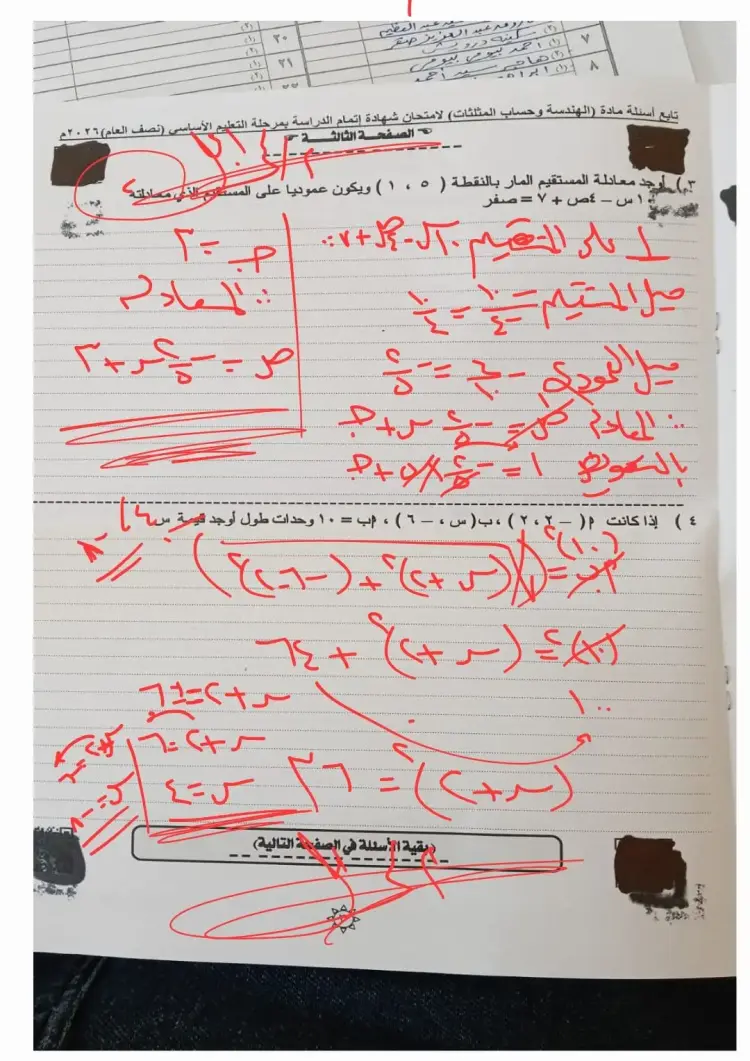 ٣٠
٣١
٧
٨
(١) احمد بيومي بيومي
تابع أسئلة مادة (الهندسة وحساب المثلثات) لامتحان شهادة إتمام الدراسة بمرحلة التعليم الأساسى (نصف العام) ٢٠٢٦م
الصفحة الثالثة
٣) أوجد معادلة المستقيم المار بالنقطة ( ٥ ، ١ ) ويكون عموديا على المستقيم الذي معادلته
١٠س – ٤ص + ٧ = صفر
⊥ على المستقيم ١٠س - ٤ص + ٧ = ٠
ميل المستقيم = -١٠/-٤ = ١٠/٤
ميل العمودي = -٤/١٠ = -٢/٥
∴ المعادلة ص = -٢/٥ س + جـ
بالتعويض ١ = -٢/٥ × ٥ + جـ
جـ = ٣
∴ المعادلة
ص = -٢/٥ س + ٣
٤ ) إذا كانت م( – ٢ ، ٢ ) ، ب( س ، – ٦ ) ، مب = ١٠ وحدات طول أوجد قيمة س
٤ أ، -٨
(١٠)٢
مب = √((س + ٢)٢ + (-٦ - ٢)٢)
(١٠)٢ = (س + ٢)٢ + ٦٤
١٠٠
(س + ٢)٢ = ٣٦
س + ٢ = ±٦
س + ٢ = ٦
س = ٤
س = -٨
(بقية الأسئلة في الصفحة التالية)